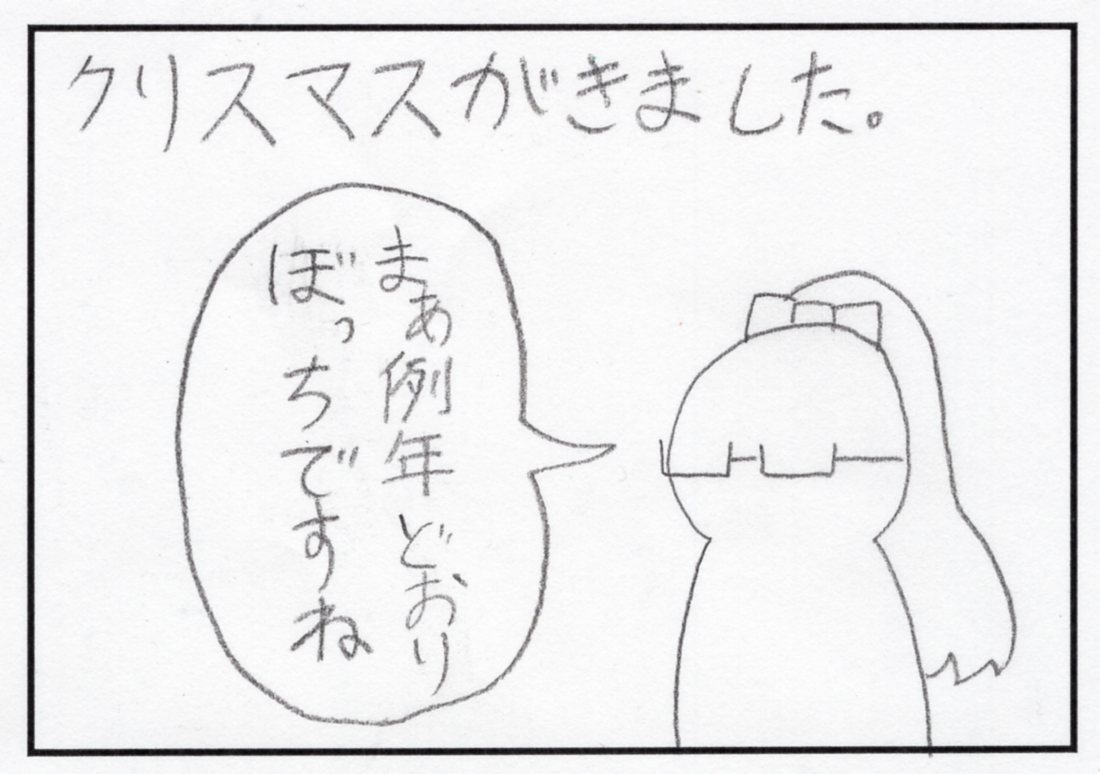 クリスマスがきました。
まぁ例年どおり
ぼっちですね